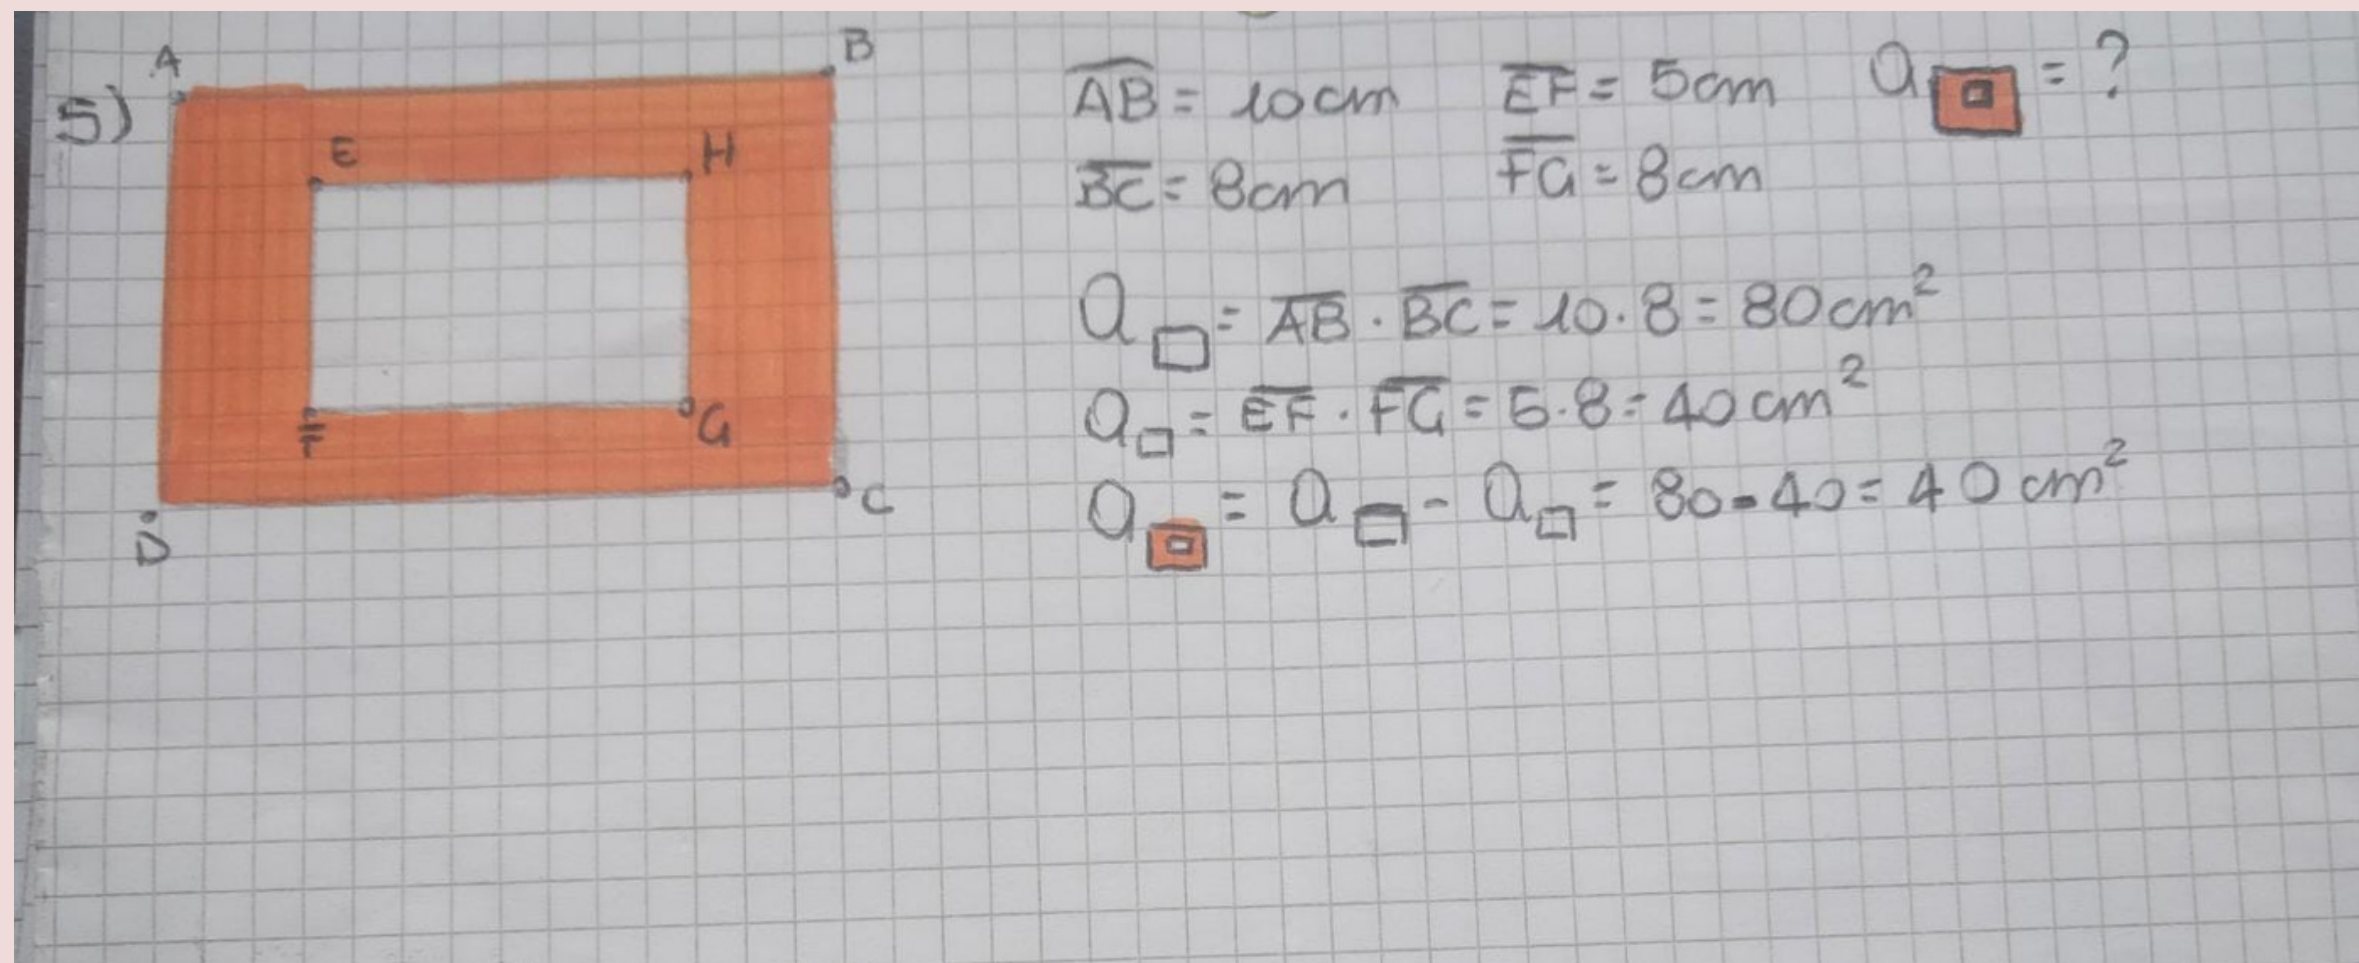 5)
A
B
E
H
F
G
D
C
AB = 10cm EF = 5cm a = ?
BC = 8cm FG = 8cm
a = AB · BC = 10 · 8 = 80cm²
a = EF · FG = 5 · 8 = 40cm²
a = a - a = 80 - 40 = 40cm²